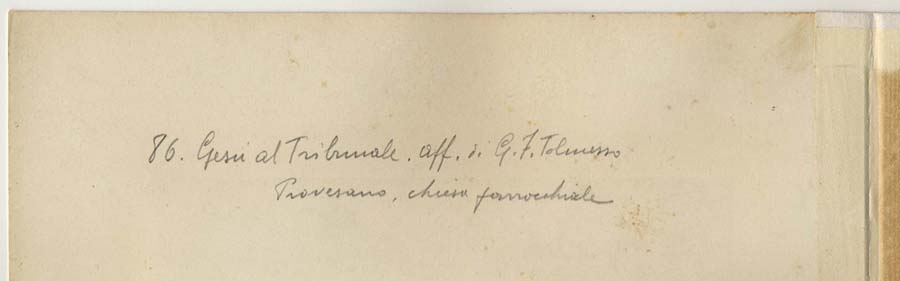 86. Gesù al Tribunale. aff. di G. F. Tolmezzo
Provesano, chiesa parrocchiale